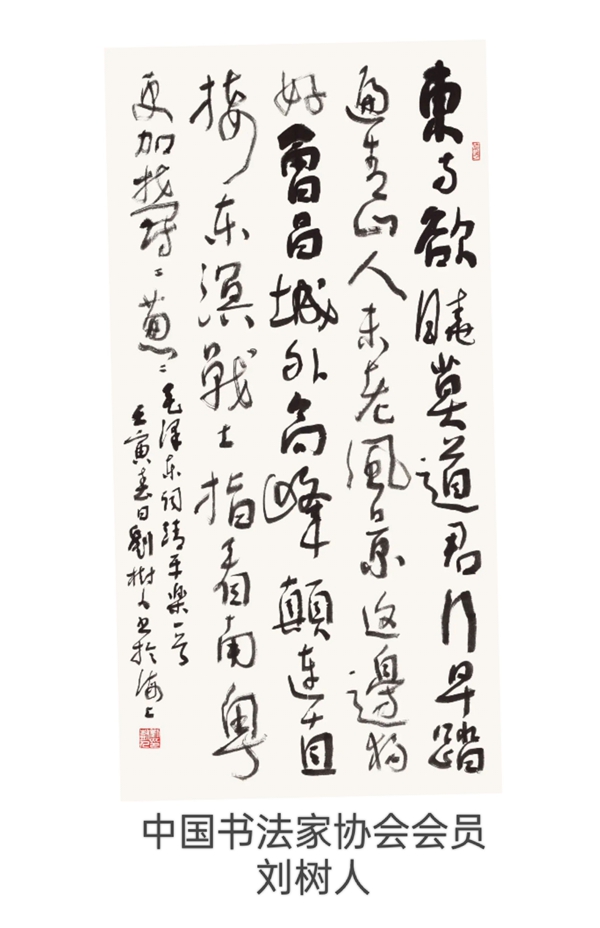 東方欲曉莫道君行早踏
遍青山人未老風景这邊独
好會昌城外高峰顛連直
接东溟戰士指看南粤
更加鬱〻葱〻毛澤东词清平樂一首
壬寅春日劉樹人书於海上
中国书法家协会会员
刘树人